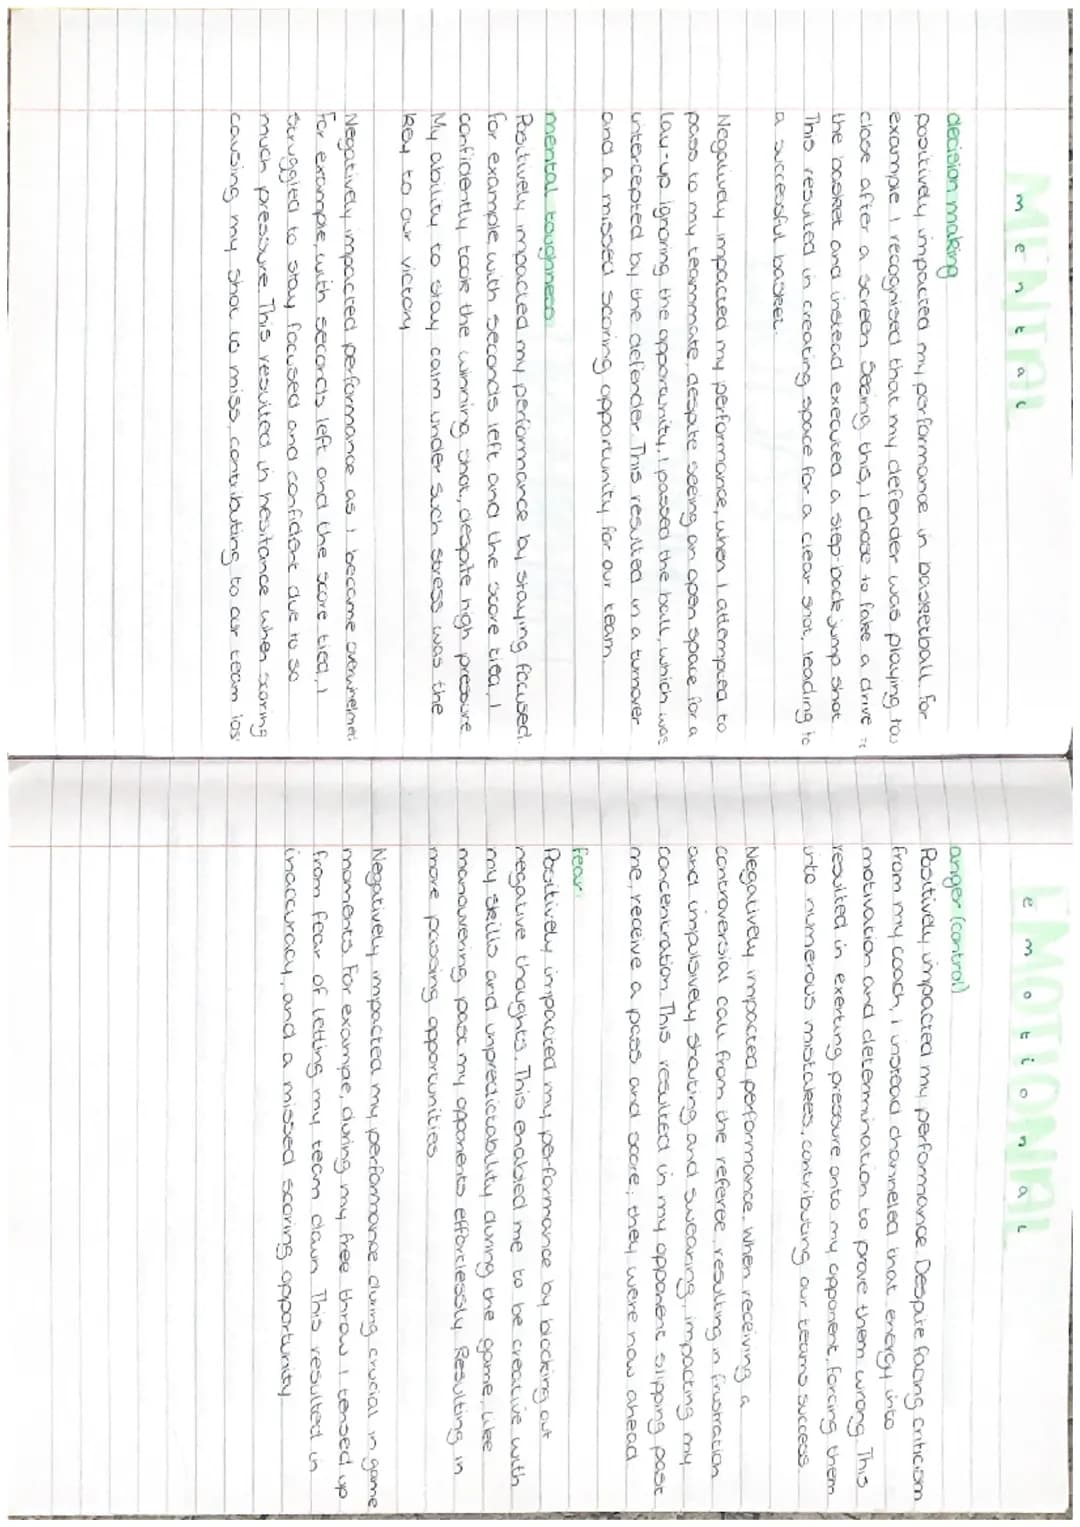 MENTAL
mental
decision making
positively impacted my performance in basketball for
example I recognised that my defender was playing too
close after a screen. Seeing this, I chose to fake a drive to
the basket and instead executed a step-back jump shot.
This resulted in creating space for a clear shot, leading to
a successful basket.
Negatively impacted my performance, when I attempted to
pass to my teammate, despite seeing an open space for a
lay-up ignoring the opportunity, I passed the ball, which was
intercepted by the defender. This resulted in a turnover
and a missed scoring opportunity for our team.
mental toughness:
Positively impacted my performance by staying focused.
for example, with seconds left and the score tied, I
confidently took the winning shot, despite high pressure
My ability to stay calm under such stress was the
key to our victory
Negatively impacted performance as I became overwhelmed
For example, with seconds left and the score tied, I
struggled to stay focused and confident due to so
much pressure. This resulted in hesitance when scoring
causing my shot to miss, contributing to our team loss
EMOTIONAL
emotional
anger (control)
Positively impacted my performance. Despite facing criticism
from my coach, I instead channeled that energy into
motivation and determination to prove them wrong. This
resulted in exerting pressure onto my opponent, forcing them
into numerous mistakes, contributing our teams success.
Negatively impacted performance. When receiving a
controversial call from the referee, resulting in frustration
and impulsively shouting and swearing, impacting my
concentration. This resulted in my opponent slipping past
me, receive a pass and score; they were now ahead
fear:
Positively impacted my performance by blocking out
negative thoughts. This enabled me to be creative with
my skills and unpredictability during the game, like
manouvering past my opponents effortlessly. Resulting in
more passing opportunities.
Negatively impacted my performance during crucial in game
moments. For exampe, during my free throw I tensed up
from fear of letting my team down. This resulted in
inaccuracy, and a missed scoring opportunity